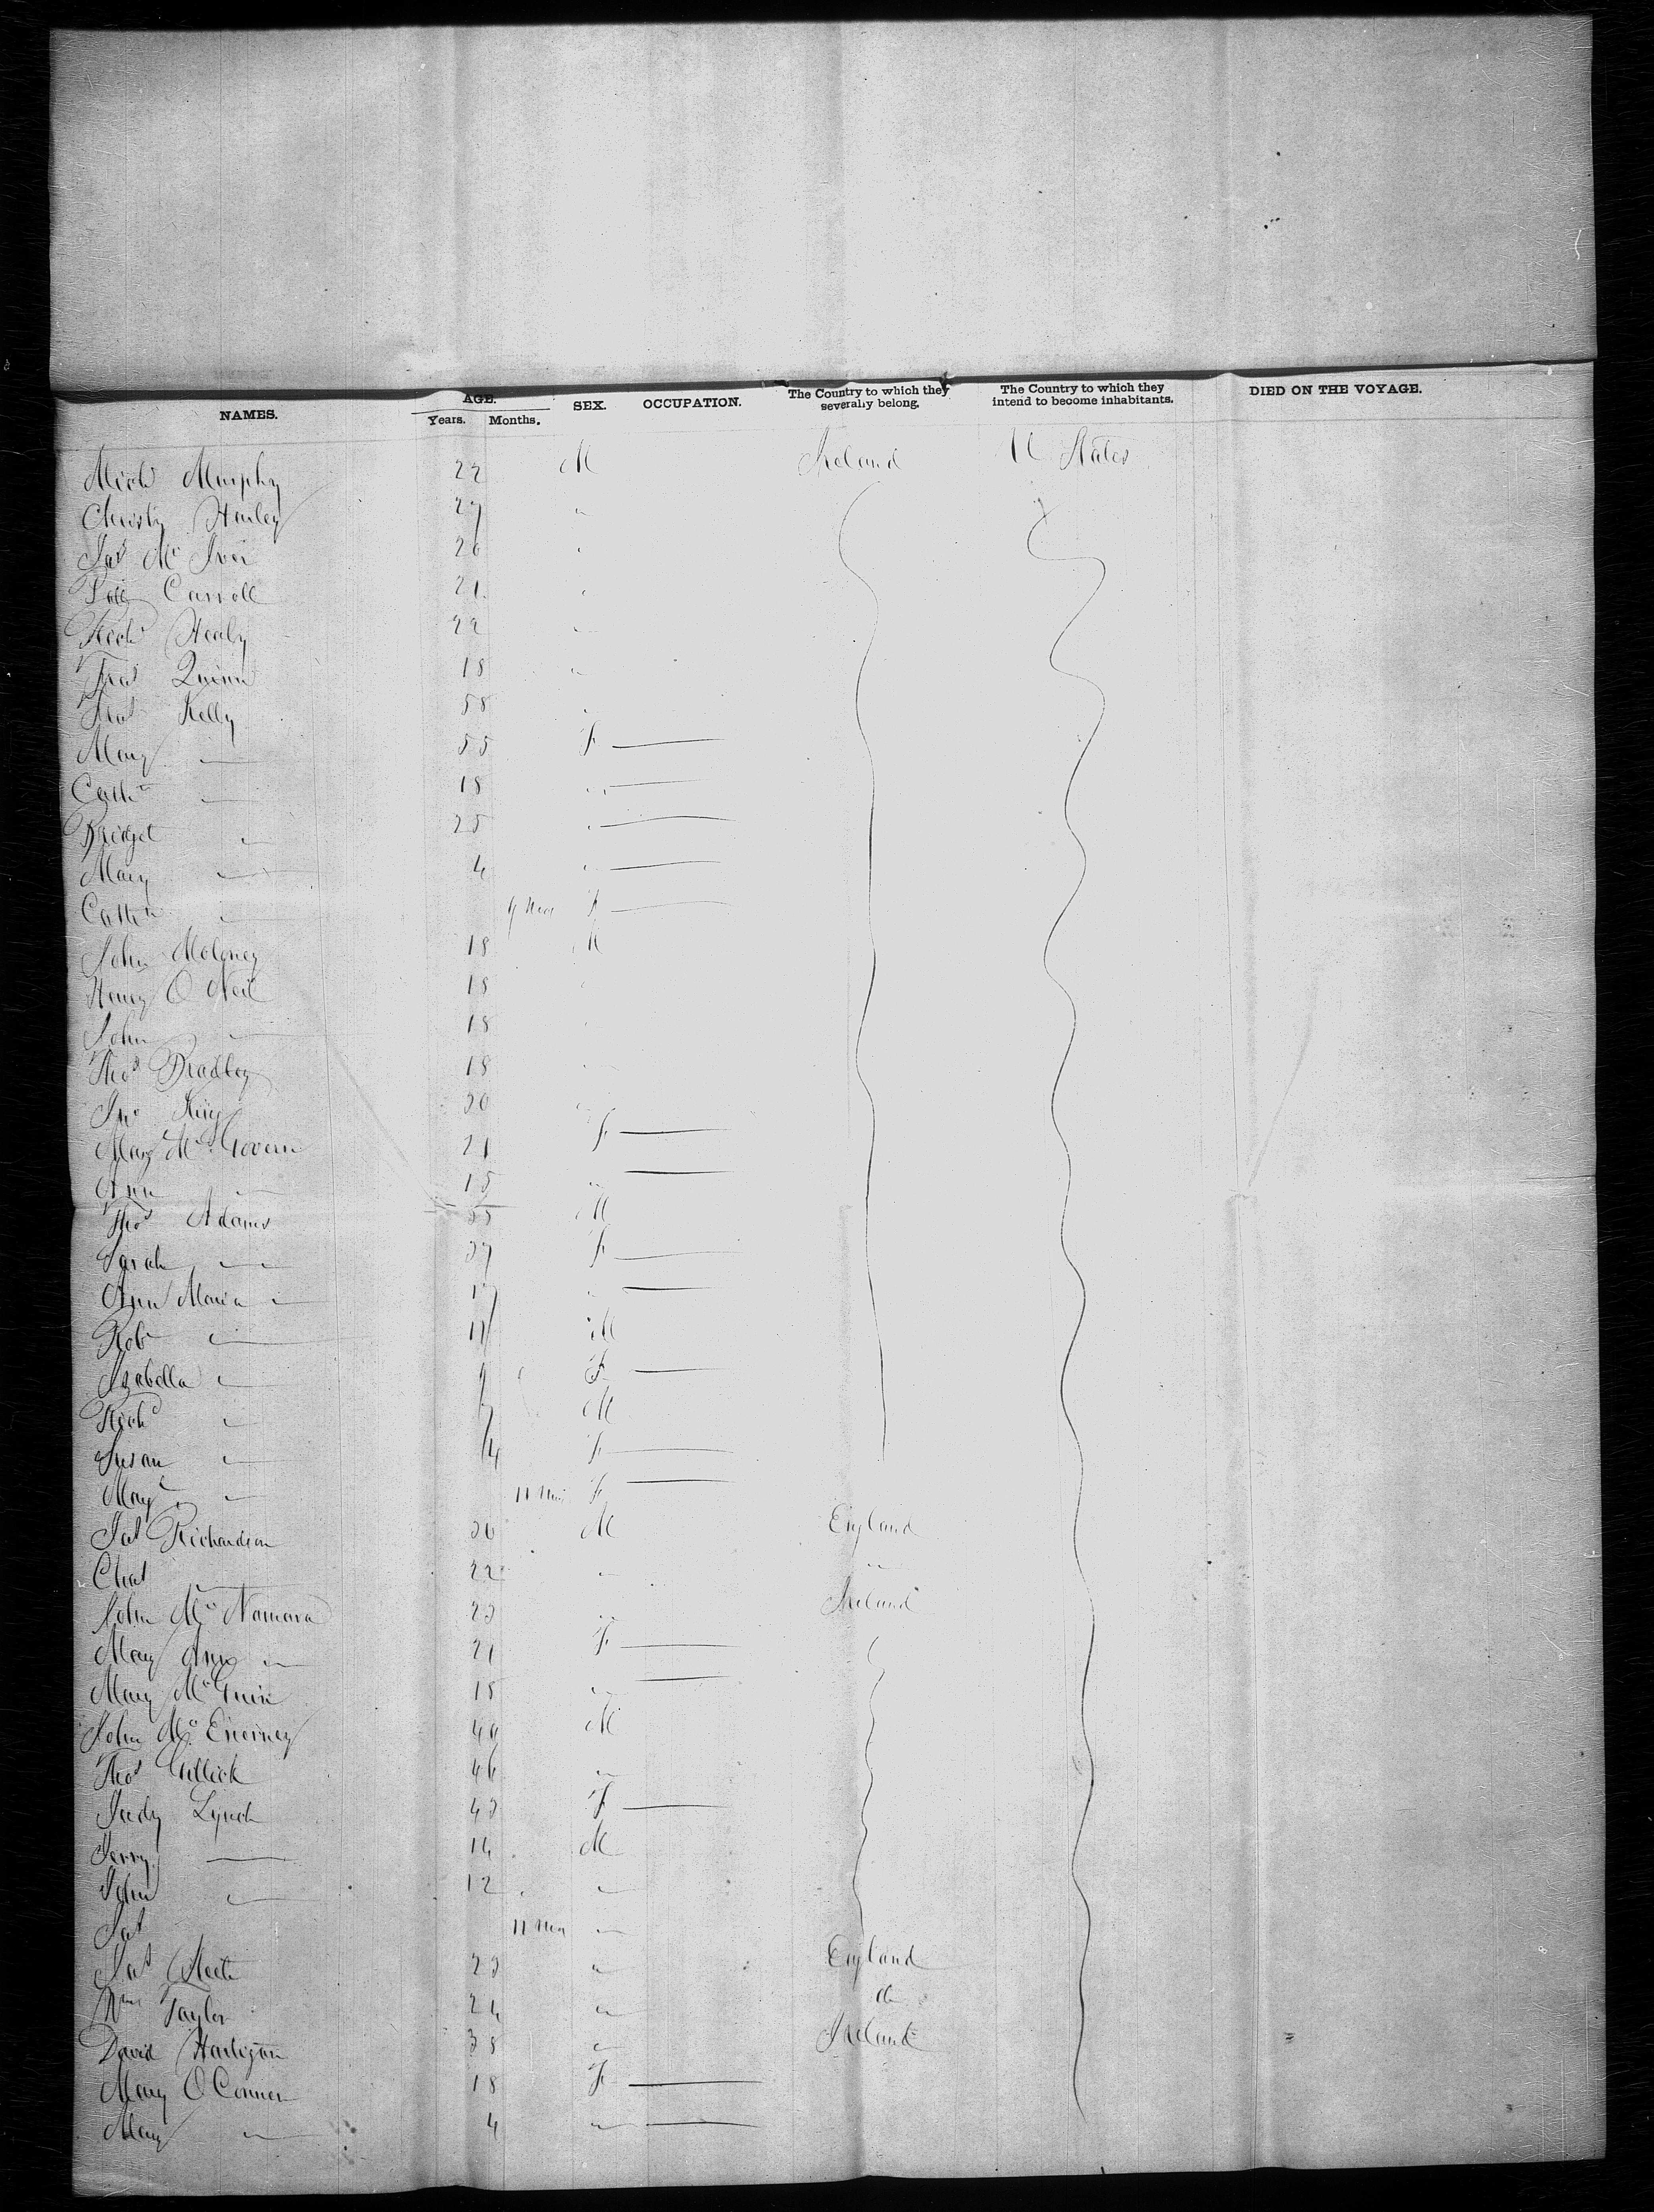 NAMES. AGE. Years. Months. SEX. OCCUPATION. The Country to which they severally belong. The Country to which they intend to become inhabitants. DIED ON THE VOYAGE.
Mich Murphy 22 M Ireland U States
Christy Hanley 27 "
Jas Mc Iver 26 "
Carroll 21 "
Richd Healy 22 "
Quinn 18 "
Kelly 58 "
Mary — 55 F —
Cathn — 18 " —
Bridget — 25 " —
Mary — 4 " —
Cathn — 9 Mos F —
John Moloney 18 M
Henry O Neil 18
John — 18
Thos Bradley 18 "
Jno King 30 "
Mary Mc Govern 21 F —
Ann — 15 " —
Thos Adams 35 M
Sarah — 37 F —
Ann Maria — 17 " —
Robt — 11 M
Izabella — 9 F —
Richd — 7 M
Susan — 4 F —
Mary — 11 Mos F —
Jas Richardson 36 M England
Chas — 22 " "
John Mc Namara 23 " Ireland
Mary Ann — 21 F —
Mary Mc Guire 18 " —
John Mc Enerney 40 M
Thos Gillick 46 "
Judy Lynch 43 F —
Jerry — 14 M
John — 12 "
Jas 11 Mos "
Jas 23 " England
Wm Taylor 24 " do
David Hartigan 38 " Ireland
Mary O Conner 18 F —
Mary — 4 " —